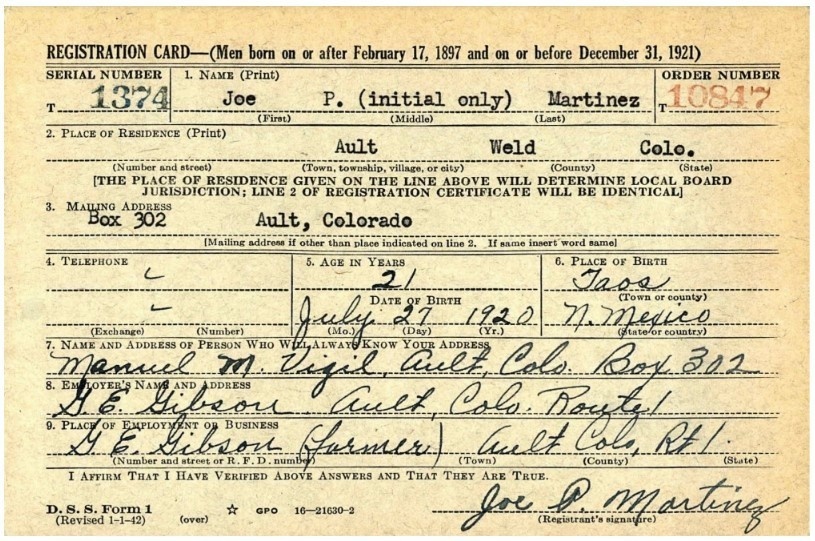 REGISTRATION CARD—(Men born on or after February 17, 1897 and on or before December 31, 1921)
SERIAL NUMBER 1. NAME (Print) ORDER NUMBER
T 1374 Joe P. (initial only) Martinez T 10847
(First) (Middle) (Last)
2. PLACE OF RESIDENCE (Print)
Ault Weld Colo.
(Number and street) (Town, township, village, or city) (County) (State)
[THE PLACE OF RESIDENCE GIVEN ON THE LINE ABOVE WILL DETERMINE LOCAL BOARD
JURISDICTION; LINE 2 OF REGISTRATION CERTIFICATE WILL BE IDENTICAL]
3. MAILING ADDRESS
Box 302 Ault, Colorado
[Mailing address if other than place indicated on line 2. If same insert word same]
4. TELEPHONE 5. AGE IN YEARS 6. PLACE OF BIRTH
21 Taos
DATE OF BIRTH (Town or county)
July 27 1920 N. Mexico
(Exchange) (Number) (Mo.) (Day) (Yr.) (State or country)
7. NAME AND ADDRESS OF PERSON WHO WILL ALWAYS KNOW YOUR ADDRESS
Manuel M. Vigil, Ault, Colo. Box 302
8. EMPLOYER'S NAME AND ADDRESS
G. E. Gibson Ault, Colo. Route 1
9. PLACE OF EMPLOYMENT OR BUSINESS
G. E. Gibson (farmer) Ault Colo, Rt 1.
(Number and street or R. F. D. number) (Town) (County) (State)
I AFFIRM THAT I HAVE VERIFIED ABOVE ANSWERS AND THAT THEY ARE TRUE.
Joe P. Martinez
D. S. S. Form 1
(Revised 1-1-42) (over) ☆ GPO 16—21630-2 (Registrant's signature)